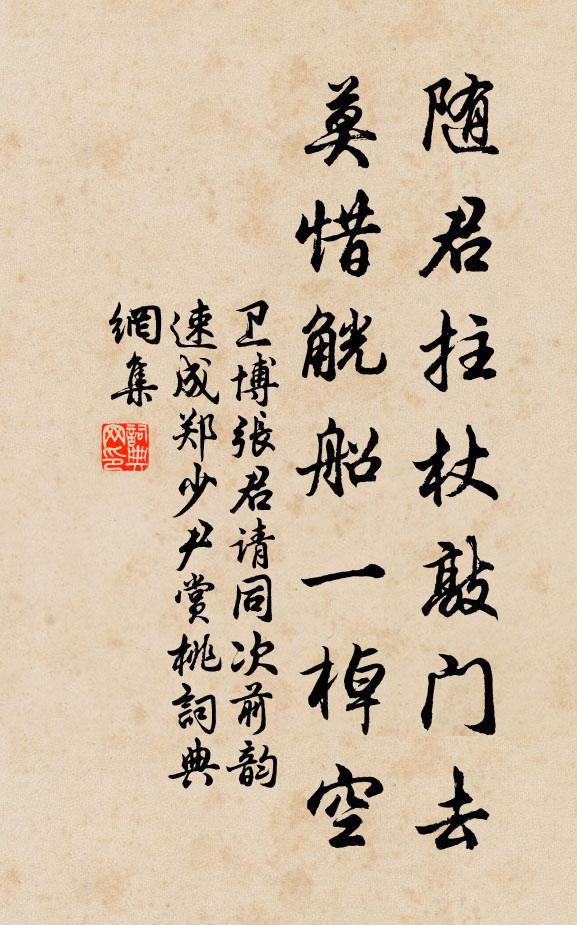 随君拄杖敲门去
莫惜觥船一棹空
卫博張君请同次前韵
速成郑少尹赏桃詞典
網集
詞典網印